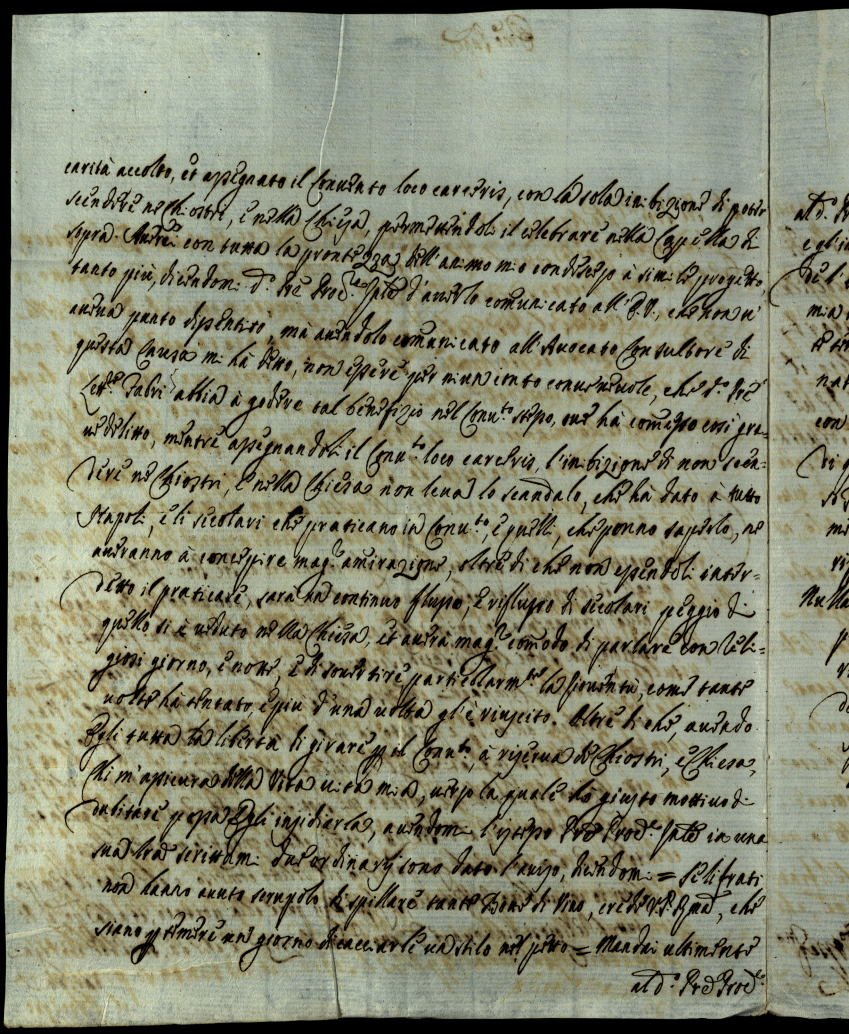 carità accolto, et assegnato il Convento loco carceris, con la sola inibizione di poter
scendere ne Chiostri, e nella Chiesa, permettendoli il celebrare nella Cappella di
sopra. Andrei con tutta la prontezza dell'animo mio condisceso à simile progetto,
tanto più, dicendomi d.º Pre Prod.le Inte d'averlo comunicato all'P.V., che non v'
aveva punto dissentito, mà avendolo comunicato all'Avocato Consultore di
questa Causa mi hà detto, non essere per niun conto convenevole, che d.º Pre
Lett.e Fabri abbia à godere tal benefizio nel Conv.to stesso, ove hà comesso cosi gra=
ve delitto, mentre assegnandoli il Conv.to loco carceris, l'inibizione di non scen=
dere ne Chiostri, e nella Chiesa non leva lo scandalo, che hà dato à tutto
Napoli, e li secolari che praticano in Conv.to, e quelli, che ponno saperlo, ne
averanno à concepire mag.r amirazione, oltre di che non essendoli inter=
detto il praticare, sarà un continuo flusso, e riflusso di secolari peggio di
quello si è veduto nella Chiesa, et averà mag.r comodo di parlare con Reli=
giosi giorno, e notte, e di sovertire particellarm.te la Gioventù, come tante
volte hà tentato, e più d'una volta gl'è riuscito. Oltre di che, avendo
Egli tutta la libertà di girare p el Conv.to, à riserva de Chiostri, e Chiesa,
chi m'assicura della Vita vita mia, verso la quale hò giusto mottivo di
dubitare possa Egli insidiarla, avendomi l'istesso Pre Prod.le Inte in una
sua tras scrittami due ordinarij sono dato l'aviso, dicendomi = Se li frati
non hanno avuto scrupolo di spillare tante Botti di Vino, crede V.P. Rma, che
siano p temere un giorno di cacciarle un stilo nel petto = Mandai ultimente
al d.º Pre Prod.le